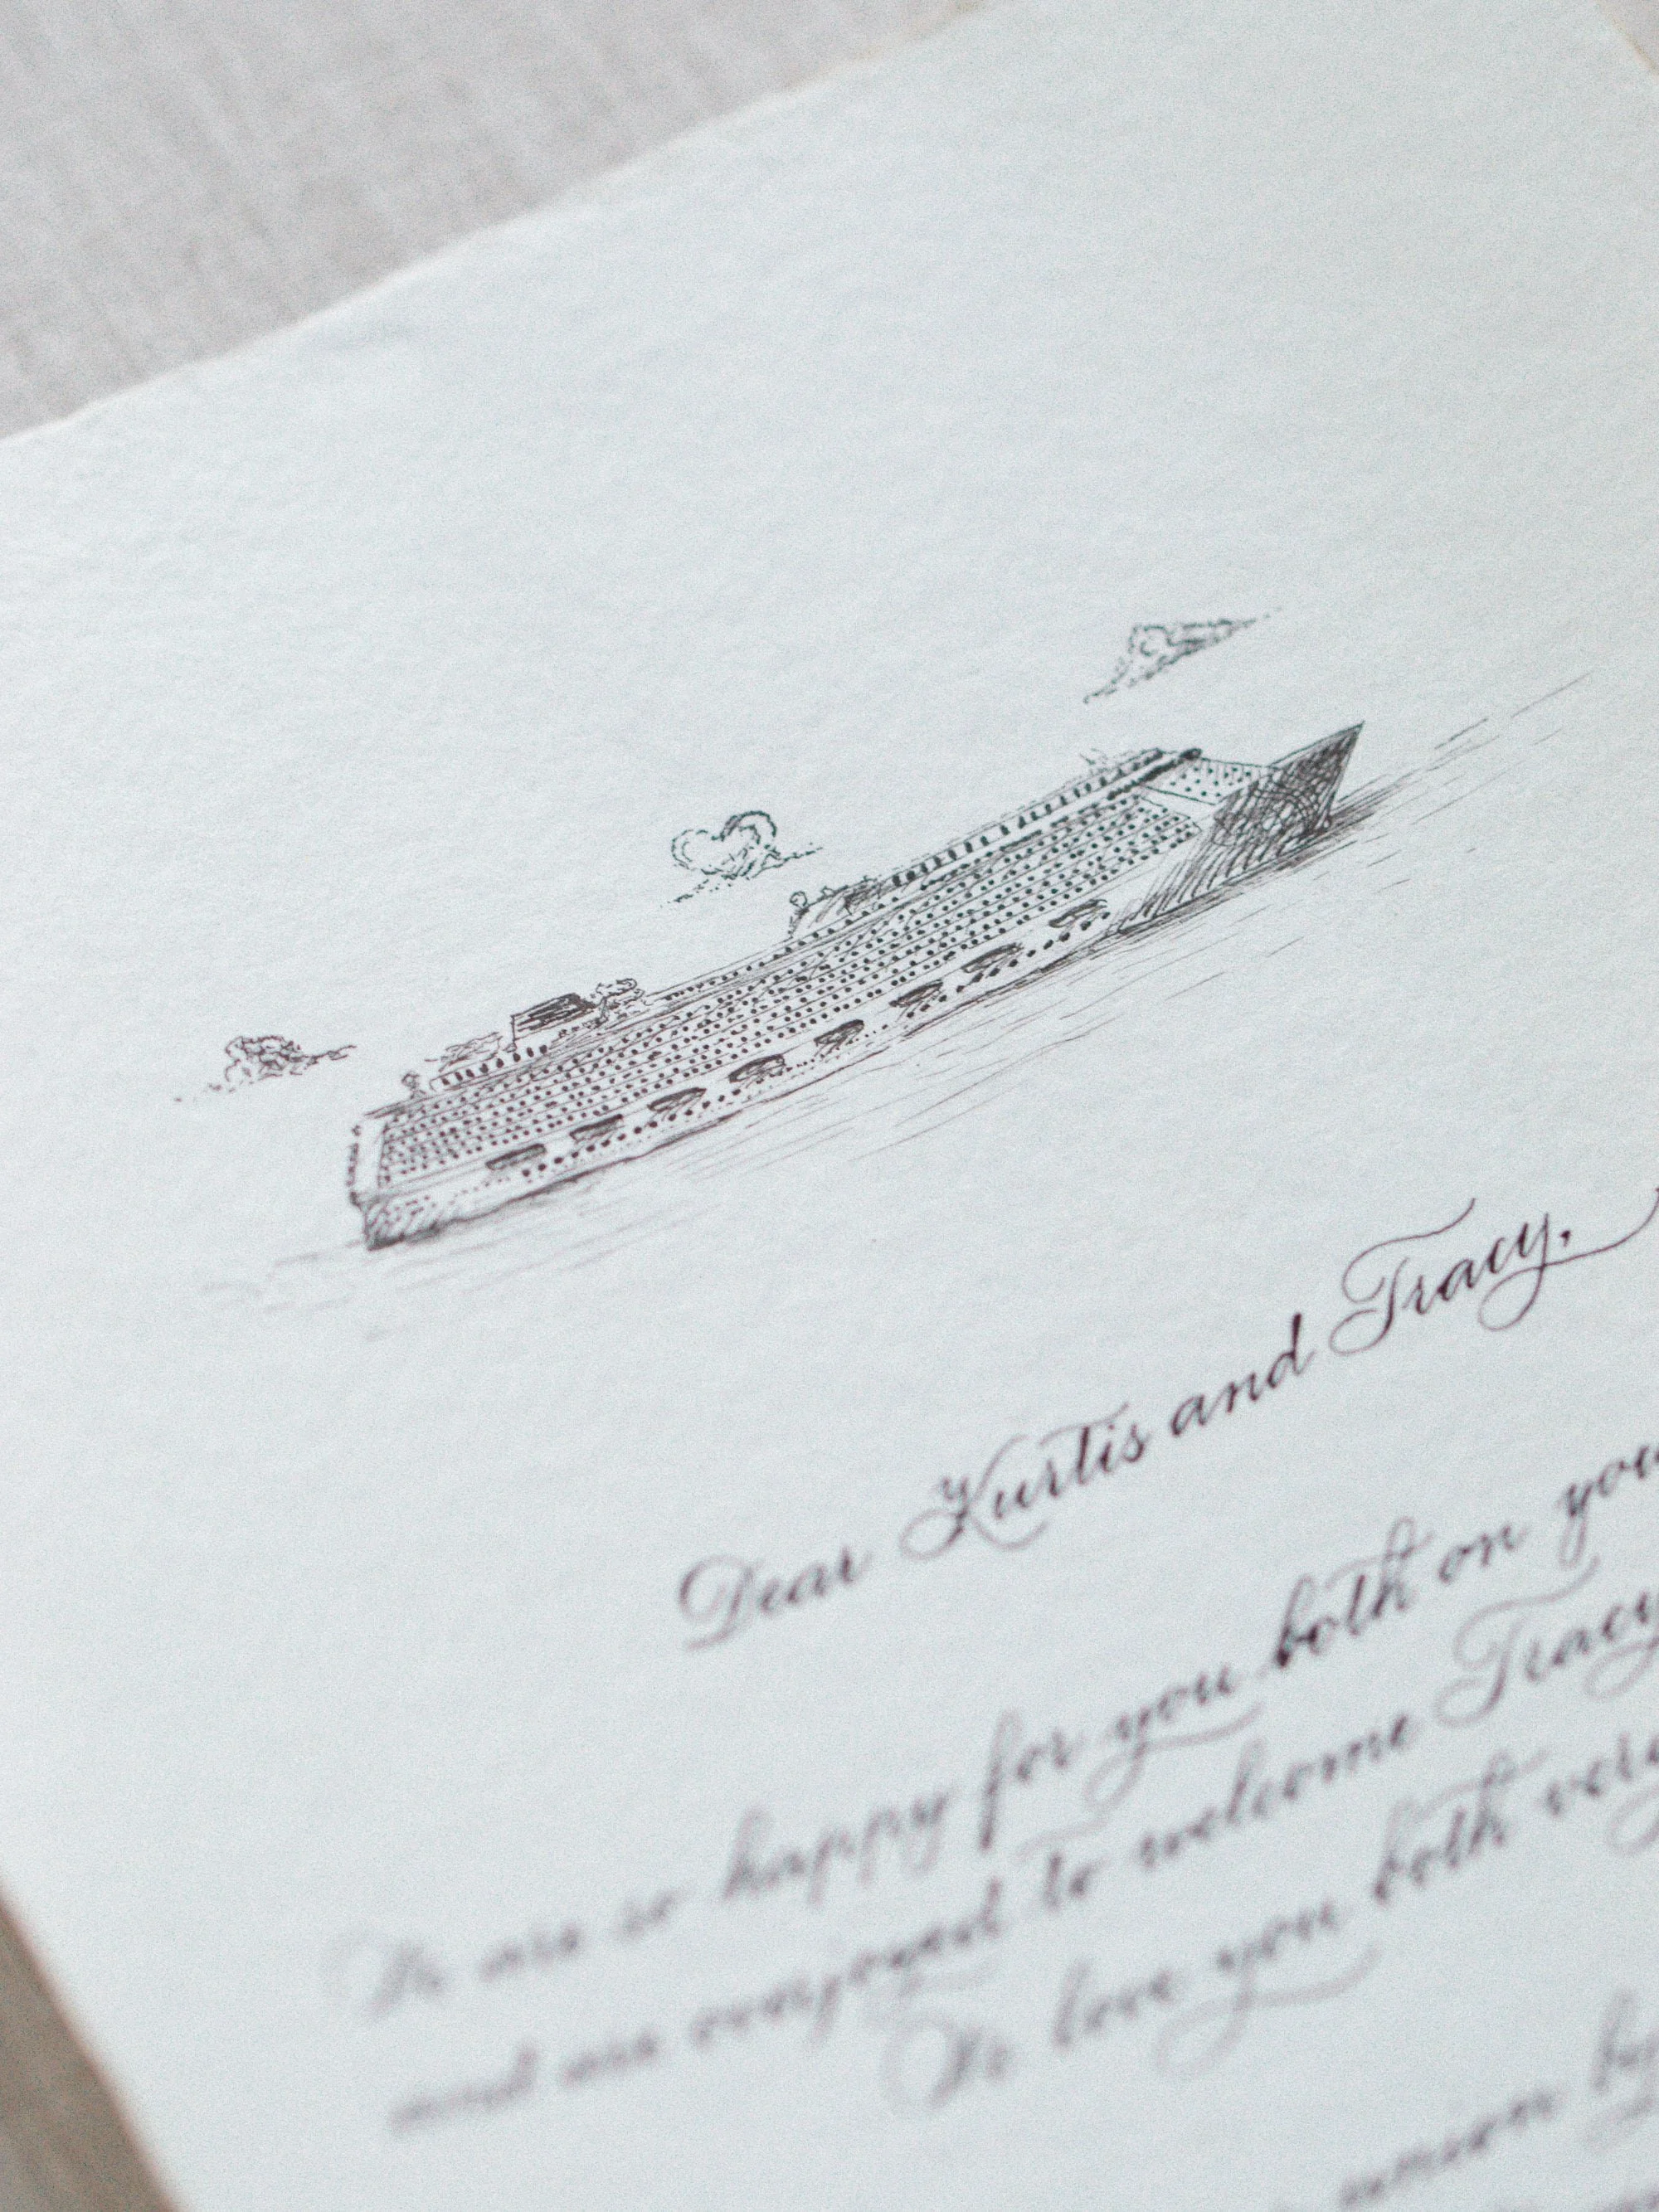 Dear Kurtis and Tracy,
We are so happy for you both on you
and are overjoyed to welcome Tracy
We love you both very
union by